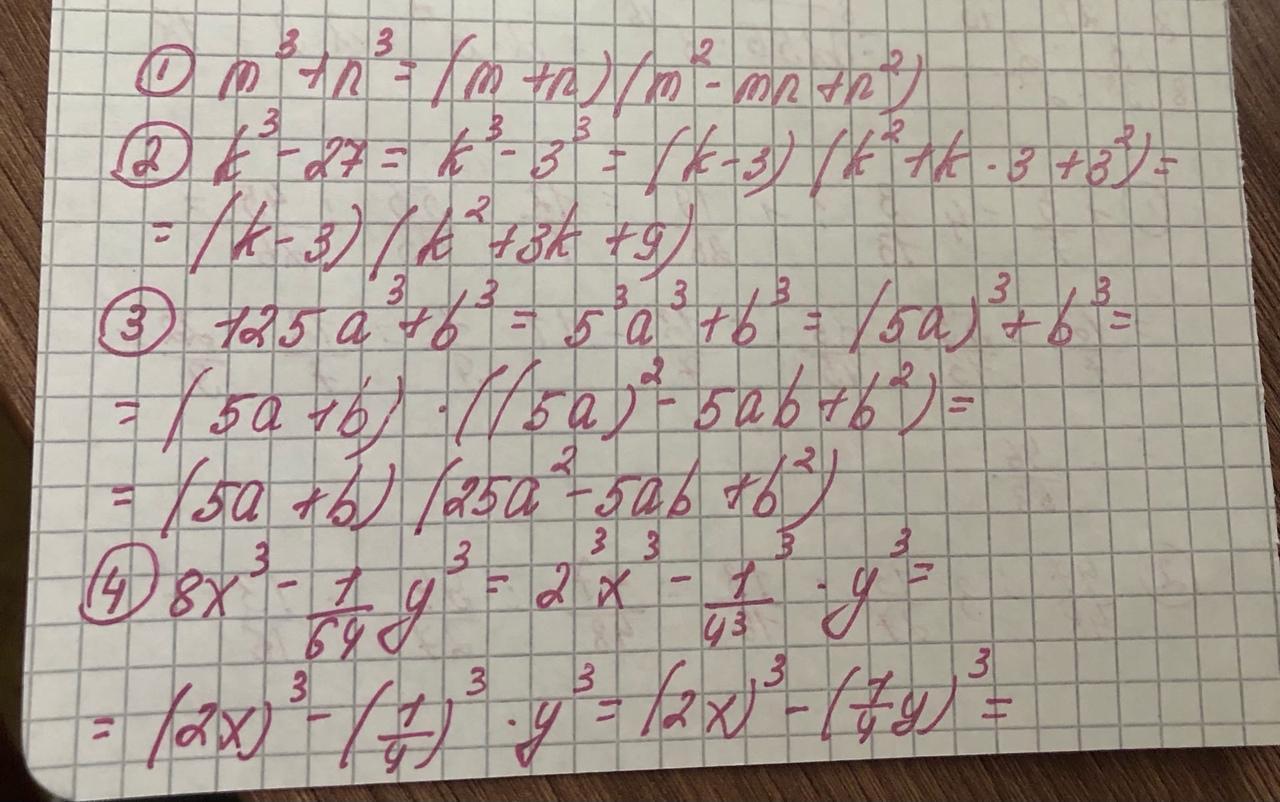 ① m³+n³=(m+n)(m²-mn+n²)
② k³-27=k³-3³=(k-3)(k²+k·3+3²)=
=(k-3)(k²+3k+9)
③ 125a³+b³=5³a³+b³=(5a)³+b³=
=(5a+b)·((5a)²-5ab+b²)=
=(5a+b)(25a²-5ab+b²)
④ 8x³-1/64 y³=2³x³-1³/4³·y³=
=(2x)³-(1/4)³·y³=(2x)³-(1/4 y)³=